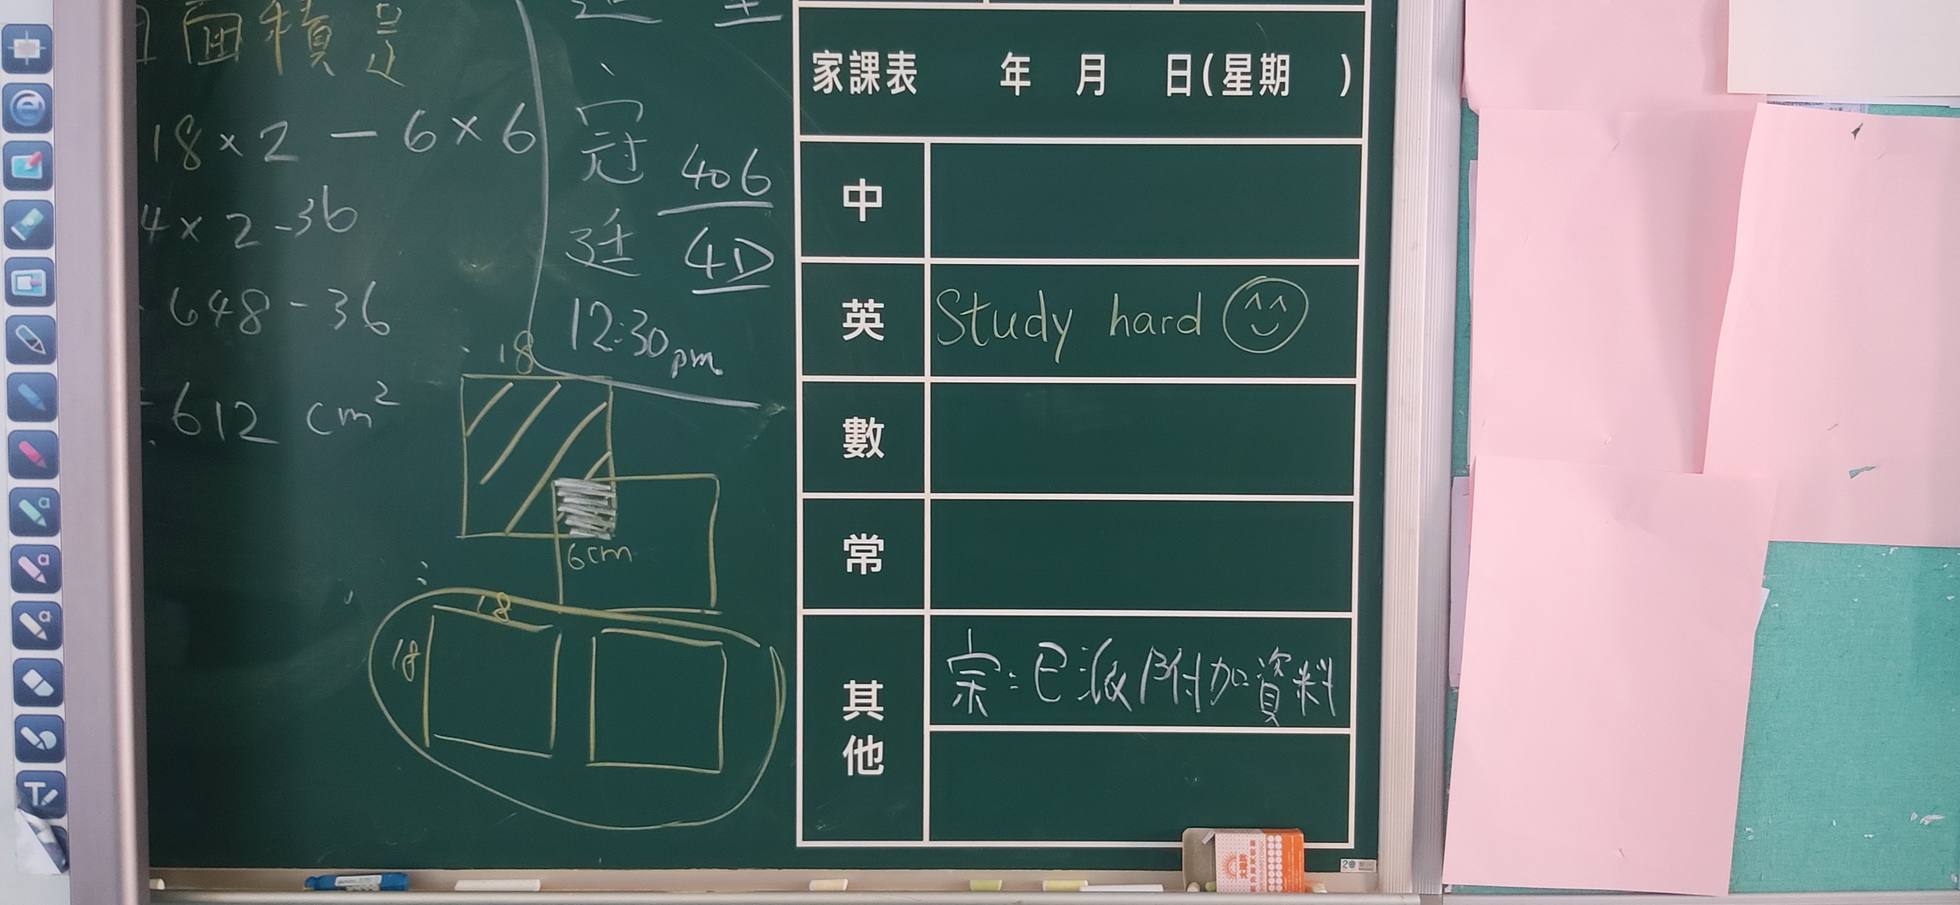 面積是
18×2 - 6×6
4×2-36
648-36
=612 cm²
冠 406
廷 4D
12:30pm
18
6cm
18
18
家課表 年 月 日(星期 )
中
英 Study hard
數
常
其他 宗:已派附加資料